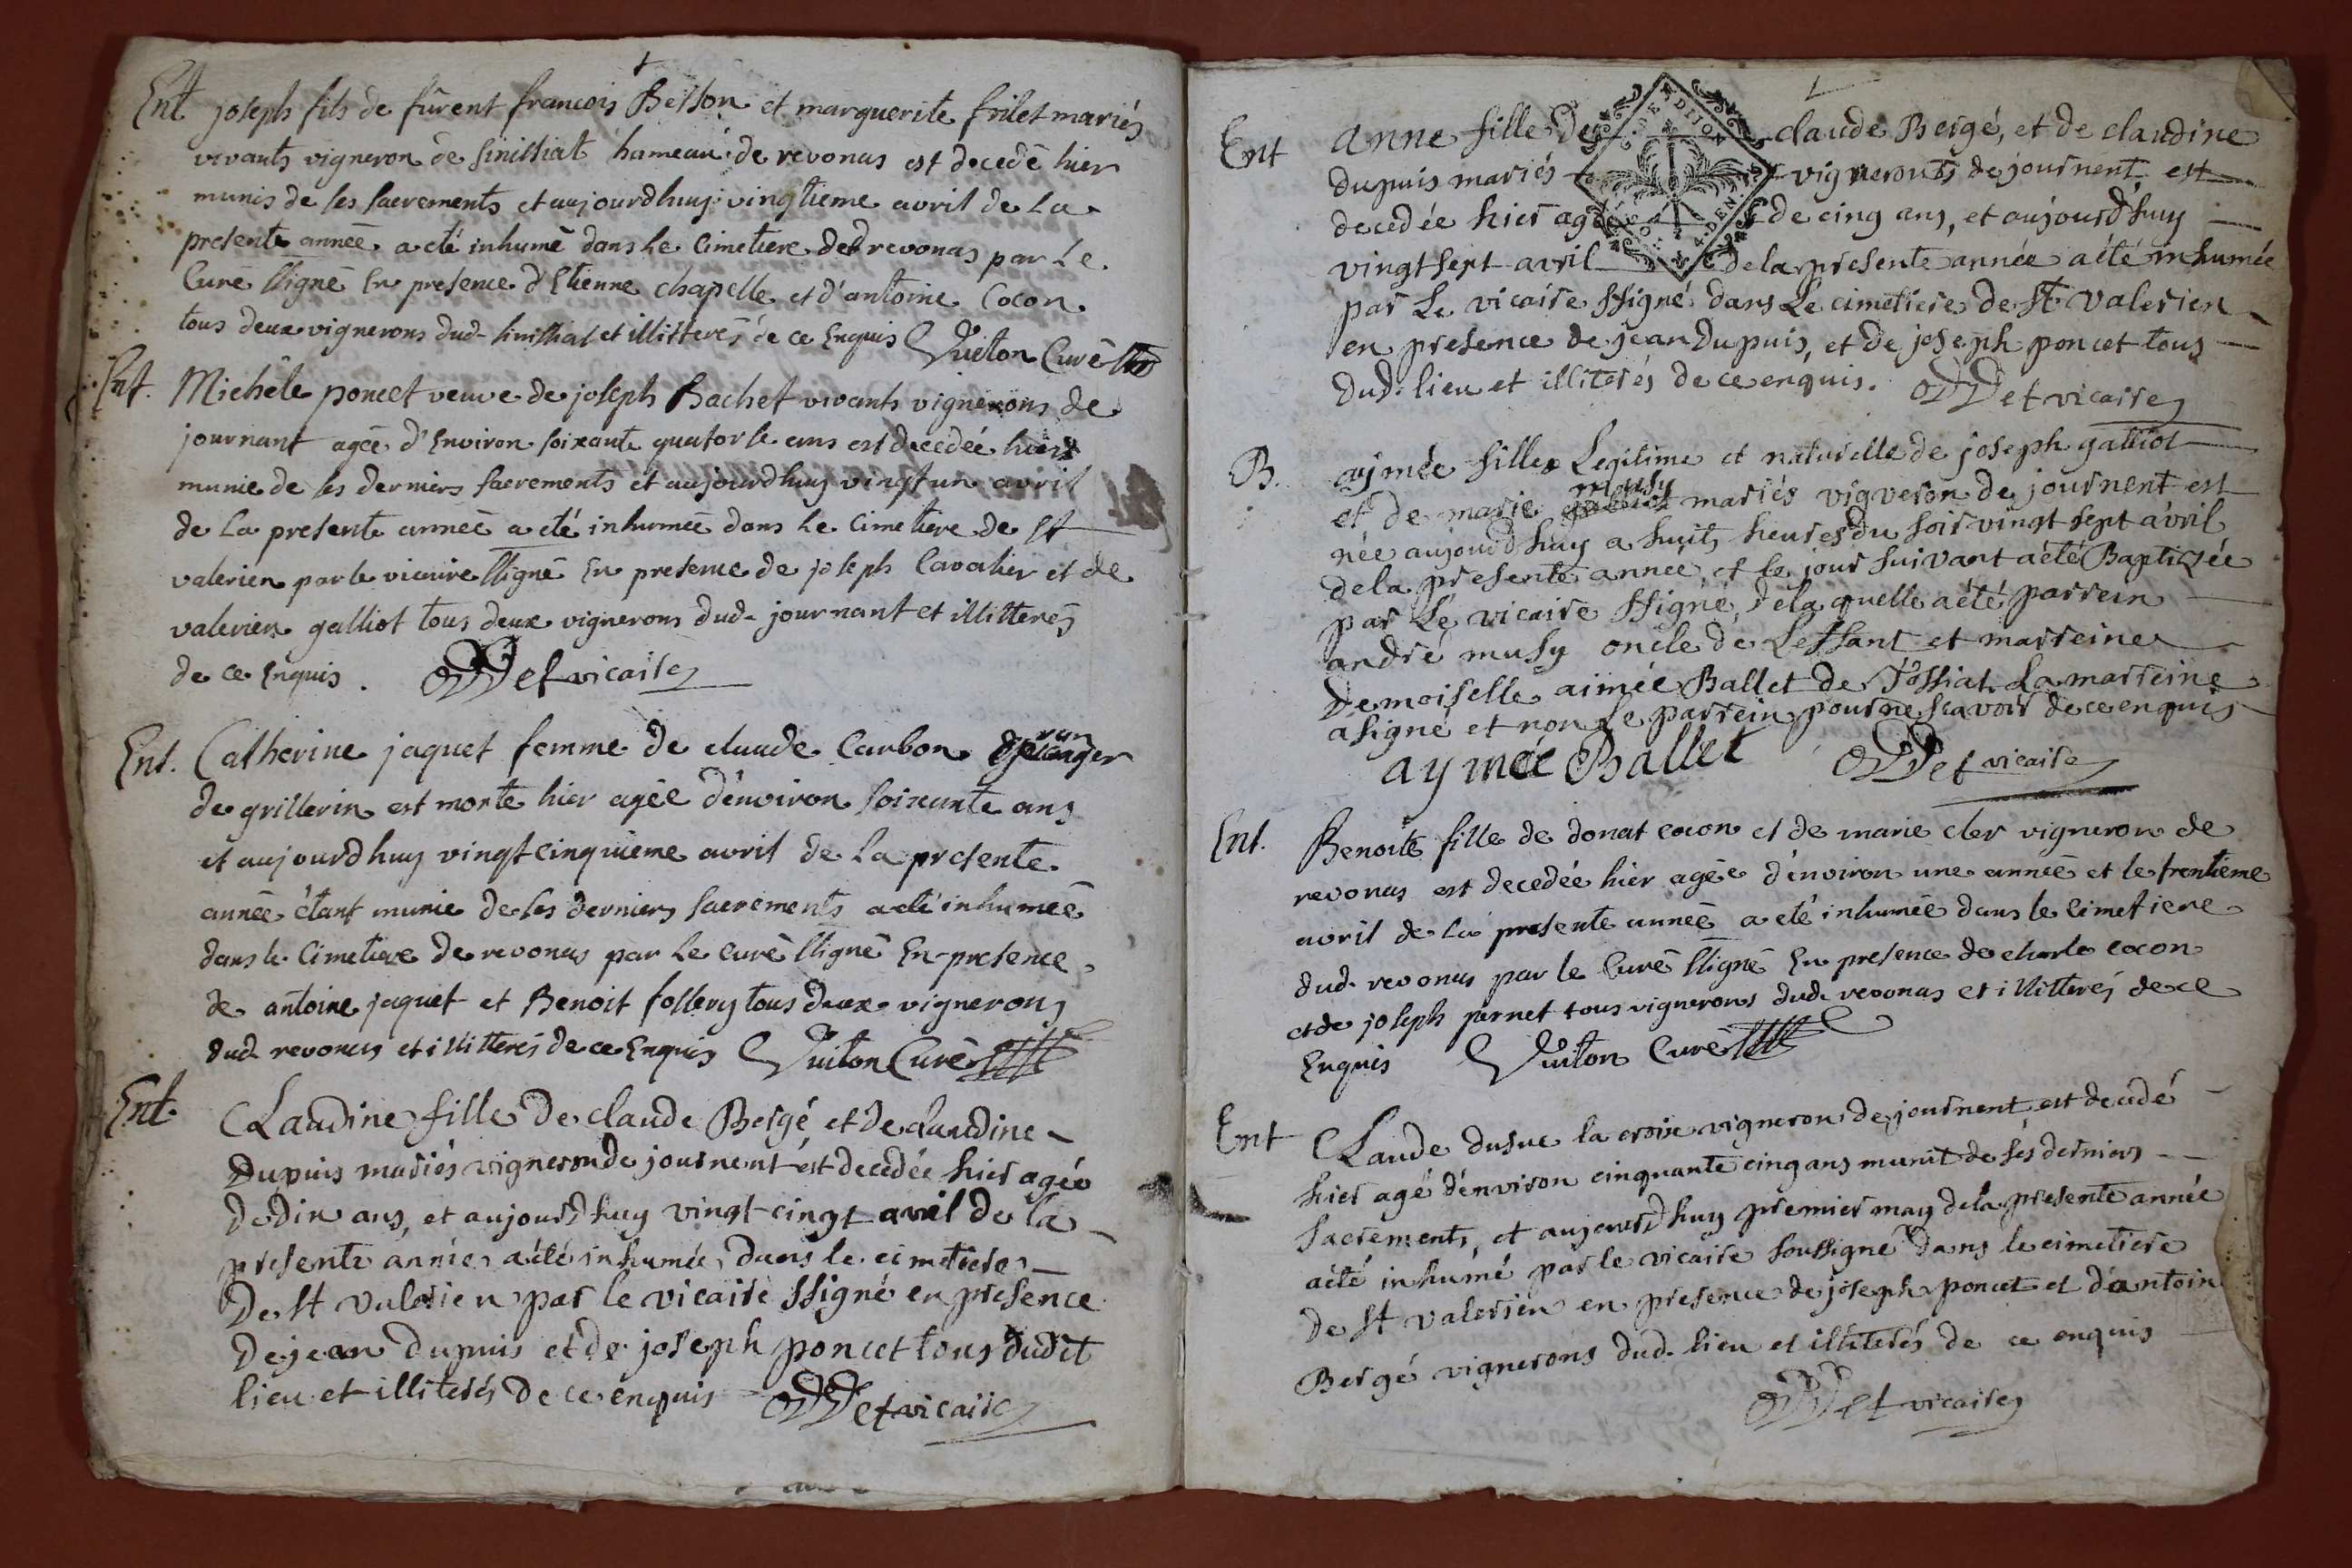 Ent joseph fils de fûrent francois Besson et marguerite frilet mariés
vivants vigneron de sinissiat hameau de revonas est decedé hier
munis de ses sacrements et aujourdhuy vingtieme avril de la
presente année a eté inhumé dans le Cimetiere de revonas par Le
Curé ssigné En presence d'Etienne chapelle et d'antoine Cocon
tous deux vignerons dud. sinissiat et illitterés de ce Enquis Vuiton Curé
Ent. Michéle poncet veuve de joseph Bachet vivants vignerons de
journant agée d'Environ soixante quatorse ans est decedée hier
munie de ses derniers sacrements et aujourdhuy vingt un avril
de La presente année a eté inhumée dans le Cimetiere de st
valerien par le vicaire ssigné En presence de joseph Cavalier et de
valerien galliot tous deux vignerons dud. journant et illitterés
de ce Enquis. vicaire
Ent. Catherine jaquet femme de claude Carbon granger
de grillerin est morte hier agée d'environ soixante ans
et aujourdhuy vingt cinquieme avril de La presente
année étant munie de ses derniers sacrements a eté inhumée
dans le Cimetiere de revonas par Le curé ssigné En presence
de antoine jaquet et Benoit follery tous deux vignerons
dud. revonas et illitterés de ce Enquis Vuiton Curé
Ent. CLaudine fille de claude Bergé et de claudine
Dupuis mariés vigneron de journent est decedée hier agée
de dix ans, et aujourd'huy vingt-cinqt avril de la
presente année a été inhumée dans le cimetiere
De st valerien par le vicaire ssigné en presence
de jean dupuis et de joseph poncet tous dudit
lieu et illiterés de ce enquis vicaire
Ent anne fille de claude Bergé, et de claudine
dupuis mariés vignerons de journent est
decedée hier agée de cinq ans, et aujourd'huy
vingt sept avril de la presente année a été inhumée
par Le vicaire ssigné dans Le cimetiere de st valerien
en presence de jean dupuis, et de joseph poncet tous
dud. lieu et illiterés de ce enquis. vicaire
B. aymée fille Legitime et naturelle de joseph galliot
et de marie musy mariés vigneron de journent est
née aujourd'huy a huit heures du soir vingt sept avril
de la presente année, et le jour suivant a été Baptizée
par Le vicaire ssigné, de la quelle a été parrein
andré musy oncle de Leffant et marreine
Demoiselle aimée Ballet de Tossiat. La marreine
a signé et non Le parrein pour ne scavoir de ce enquis
aymée Ballet vicaire
Ent. Benoite fille de donat cocon et de marie cler vigneron de
revonas est decedée hier agée d'environ une année et le trentieme
avril de la presente année a eté inhumée dans le Cimetiere
dud. revonas par le Curé ssigné En presence de charle cocon
et de joseph pernet tous vignerons dud. revonas et illitterés de ce
Enquis Vuiton Curé
Ent CLaude dusue la croix vigneron de journent est decedé
hier agé d'environ cinquante cinq ans munit de ses derniers
sacrements, et aujourd'huy premier may de la presente année
a été inhumé par le vicaire soussigné dans le cimetiere
de st valerien en presence de joseph poncet et d'antoin
Bergé vignerons dud. lieu et illiterés de ce enquis
vicaire